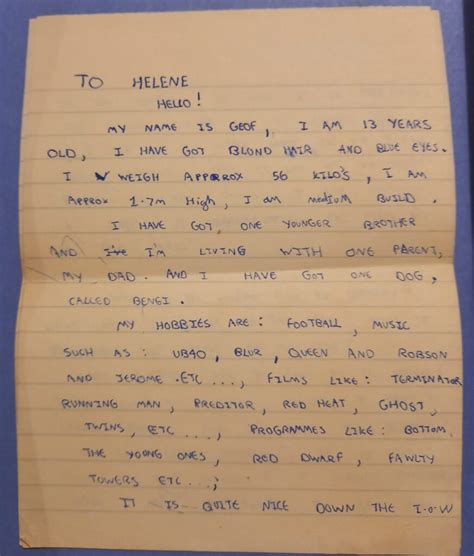 TO HELENE
HELLO!
MY NAME IS GEOF, I AM 13 YEARS
OLD, I HAVE GOT BLOND HAIR AND BLUE EYES.
I WEIGH APPRROX 56 KILO'S, I AM
APPROX 1.7m HIGH, I am medium BUILD.
I HAVE GOT, ONE YOUNGER BROTHER
AND I'M LIVING WITH ONE PARENT,
MY DAD. AND I HAVE GOT ONE DOG,
CALLED BENGI.
MY HOBBIES ARE: FOOTBALL, MUSIC
SUCH AS: UB40, BLUR, QUEEN AND ROBSON
AND JEROME .ETC ..., FILMS LIKE: TERMINATOR
RUNNING MAN, PREDITOR, RED HEAT, GHOST,
TWINS, ETC ...., PROGRAMMES LIKE: BOTTOM,
THE YOUNG ONES, RED DWARF, FAWLTY
TOWERS ETC ...;
IT IS QUITE NICE DOWN THE I.O.W